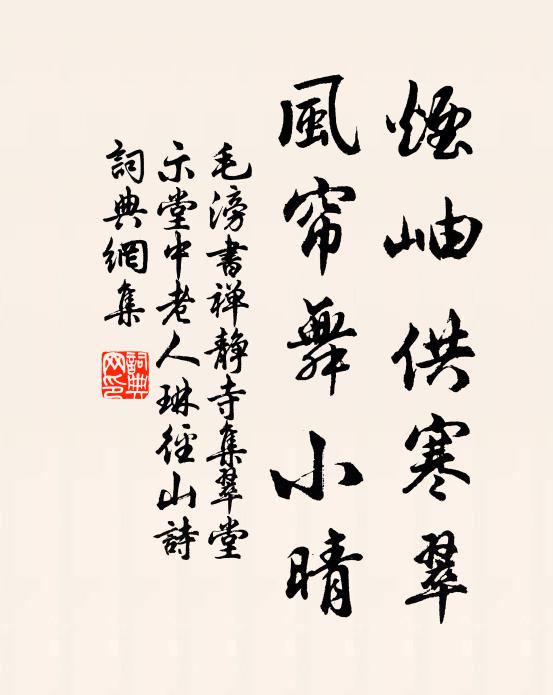 煙岫供寒翠
風帘舞小晴
毛滂書禅静寺集翠堂
示堂中老人琳徑山詩
詞典網集
詞典网印